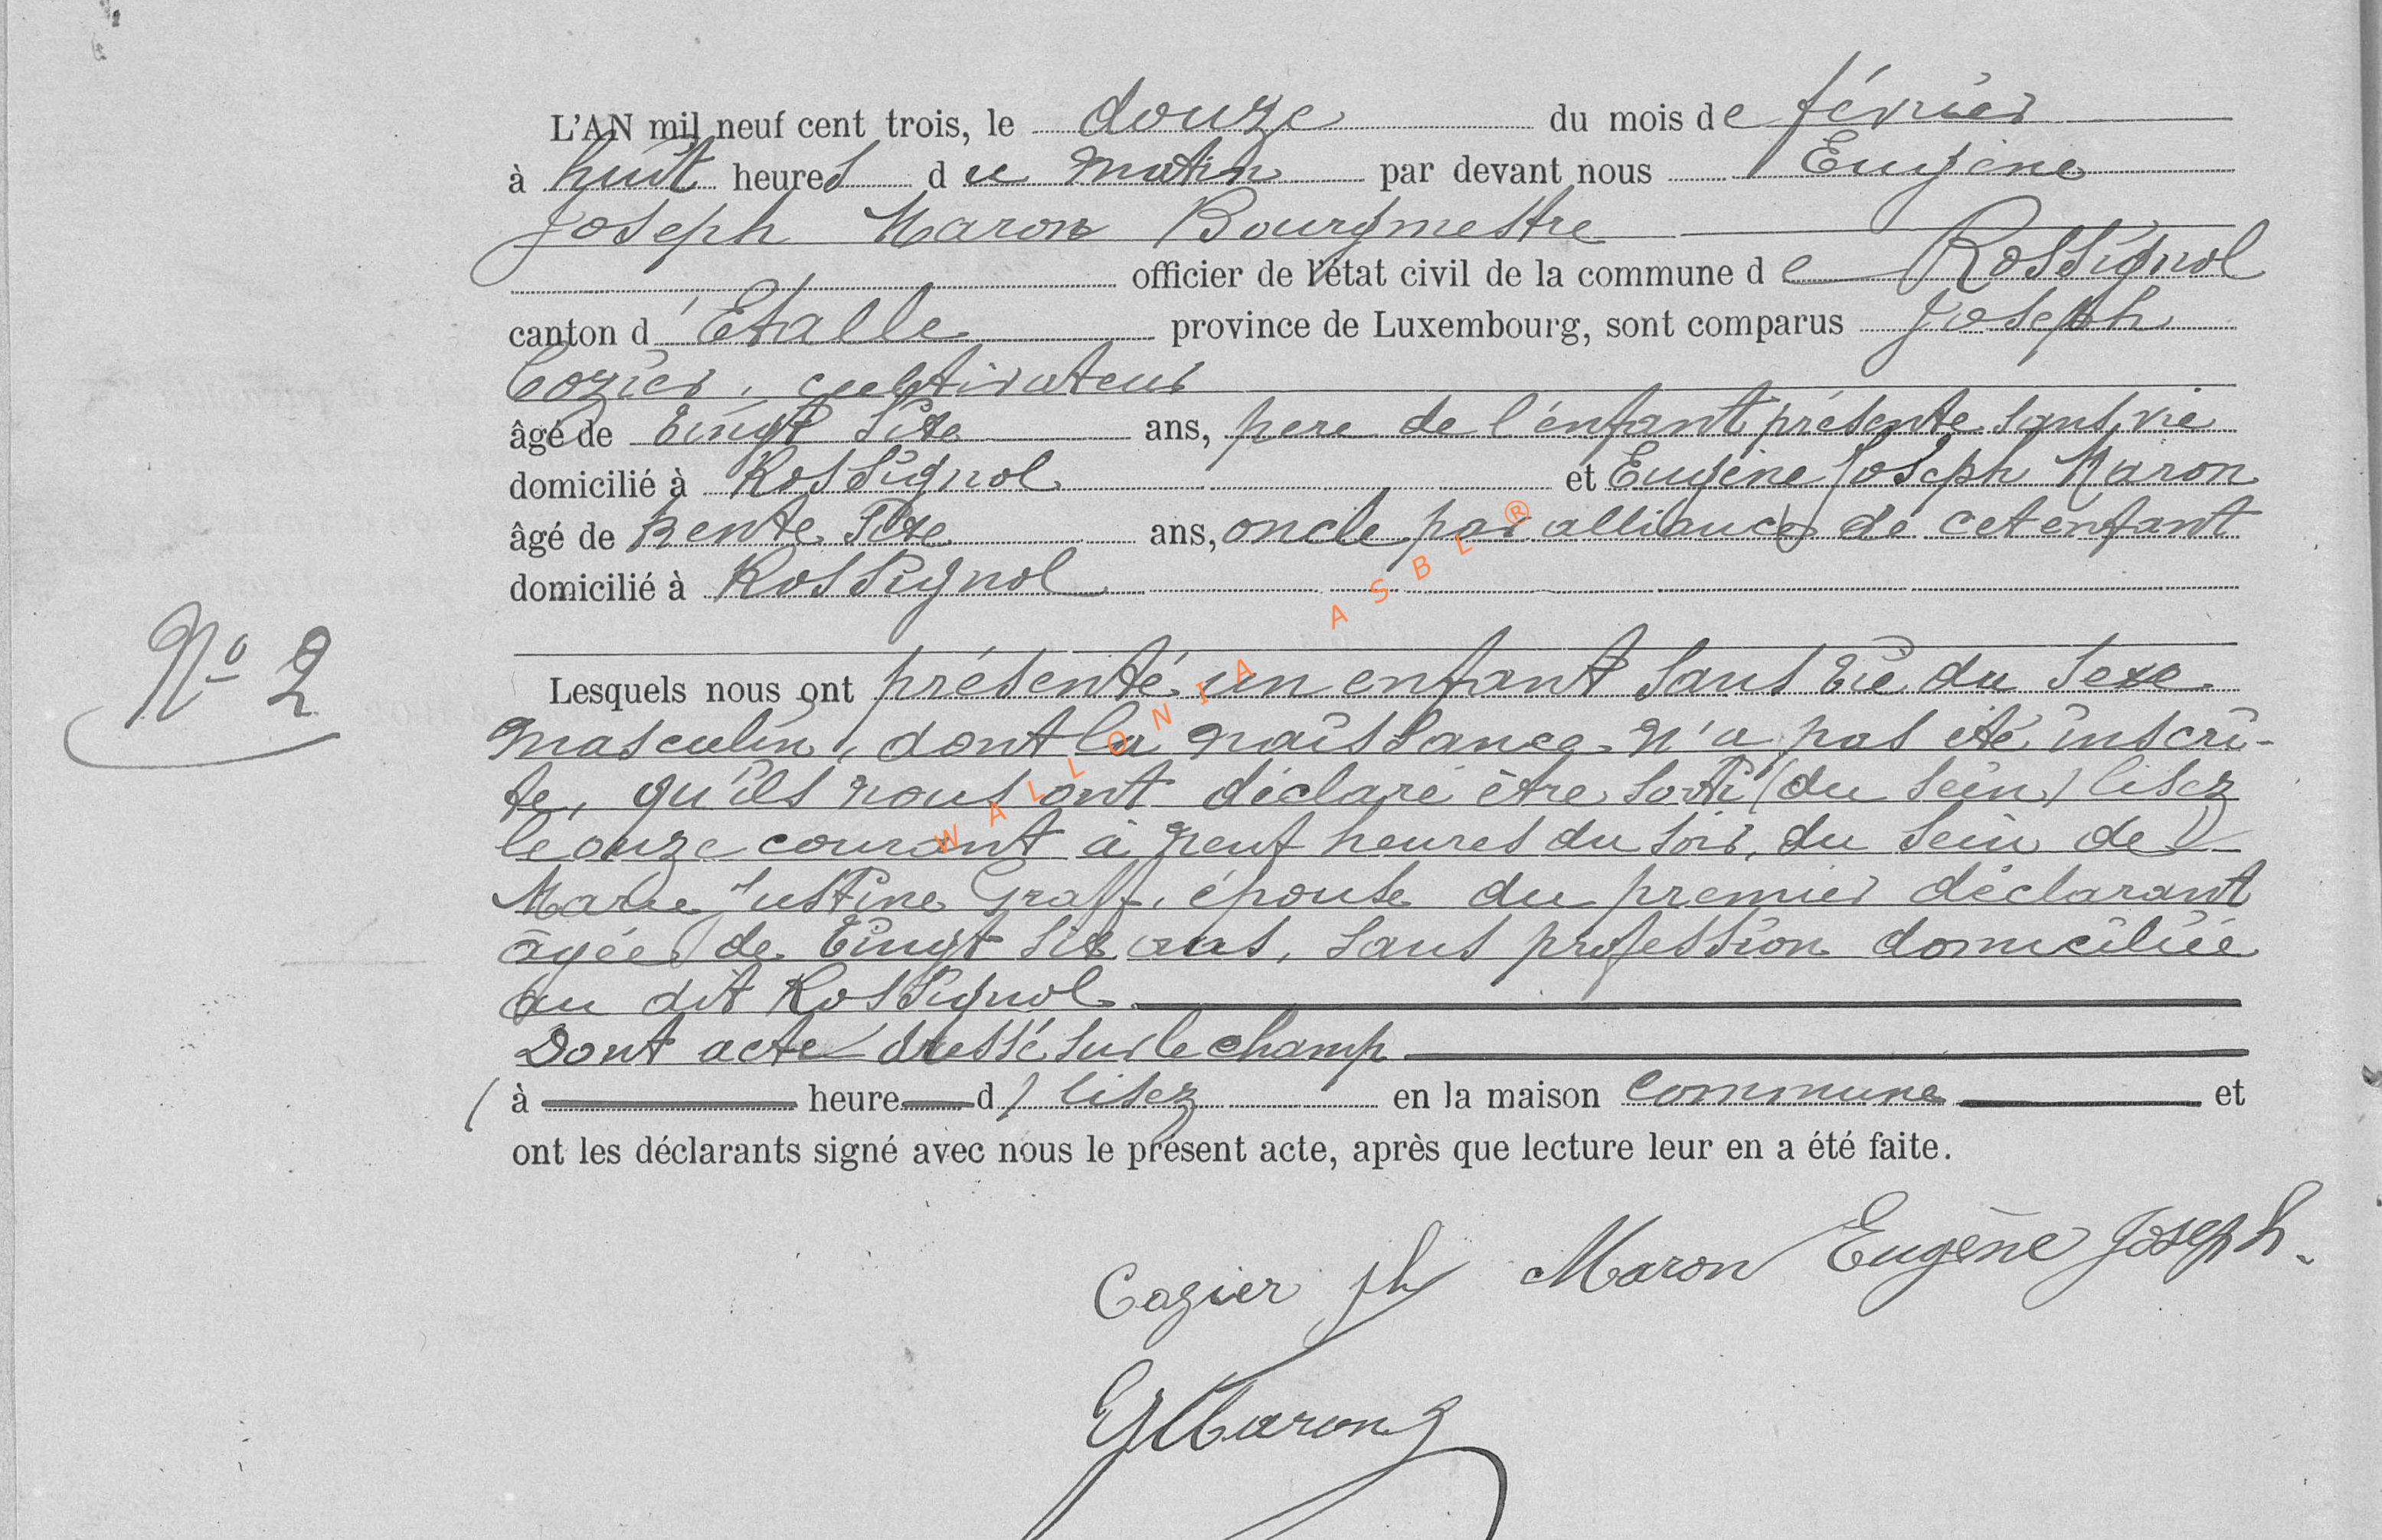 L'AN mil neuf cent trois, le douze du mois de février
à huit heures du matin par devant nous Eugène
Joseph Maron Bourgmestre
officier de l'état civil de la commune de Rossignol
canton d'Etalle province de Luxembourg, sont comparus Joseph
Cozier, cultivateur
âgé de vingt six ans, père de l'enfant présenté sans vie
domicilié à Rossignol et Eugène Joseph Maron
âgé de trente six ans, oncle par alliance de cet enfant
domicilié à Rossignol
N° 2
Lesquels nous ont présenté un enfant sans vie du sexe
masculin, dont la naissance n'a pas été inscri-
te, qu'ils nous ont déclaré être sorti (du sein) lisez
le onze courant à neuf heures du soir, du sein de
Marie Justine Graff, épouse du premier déclarant
âgée de vingt six ans, sans profession domiciliée
au dit Rossignol
Dont acte dressé sur le champ
( à heure d ) lisez en la maison commune et
ont les déclarants signé avec nous le présent acte, après que lecture leur en a été faite.
Cozier Jh Maron Eugène Joseph.
EJMaron
WALLONIA ASBL ®